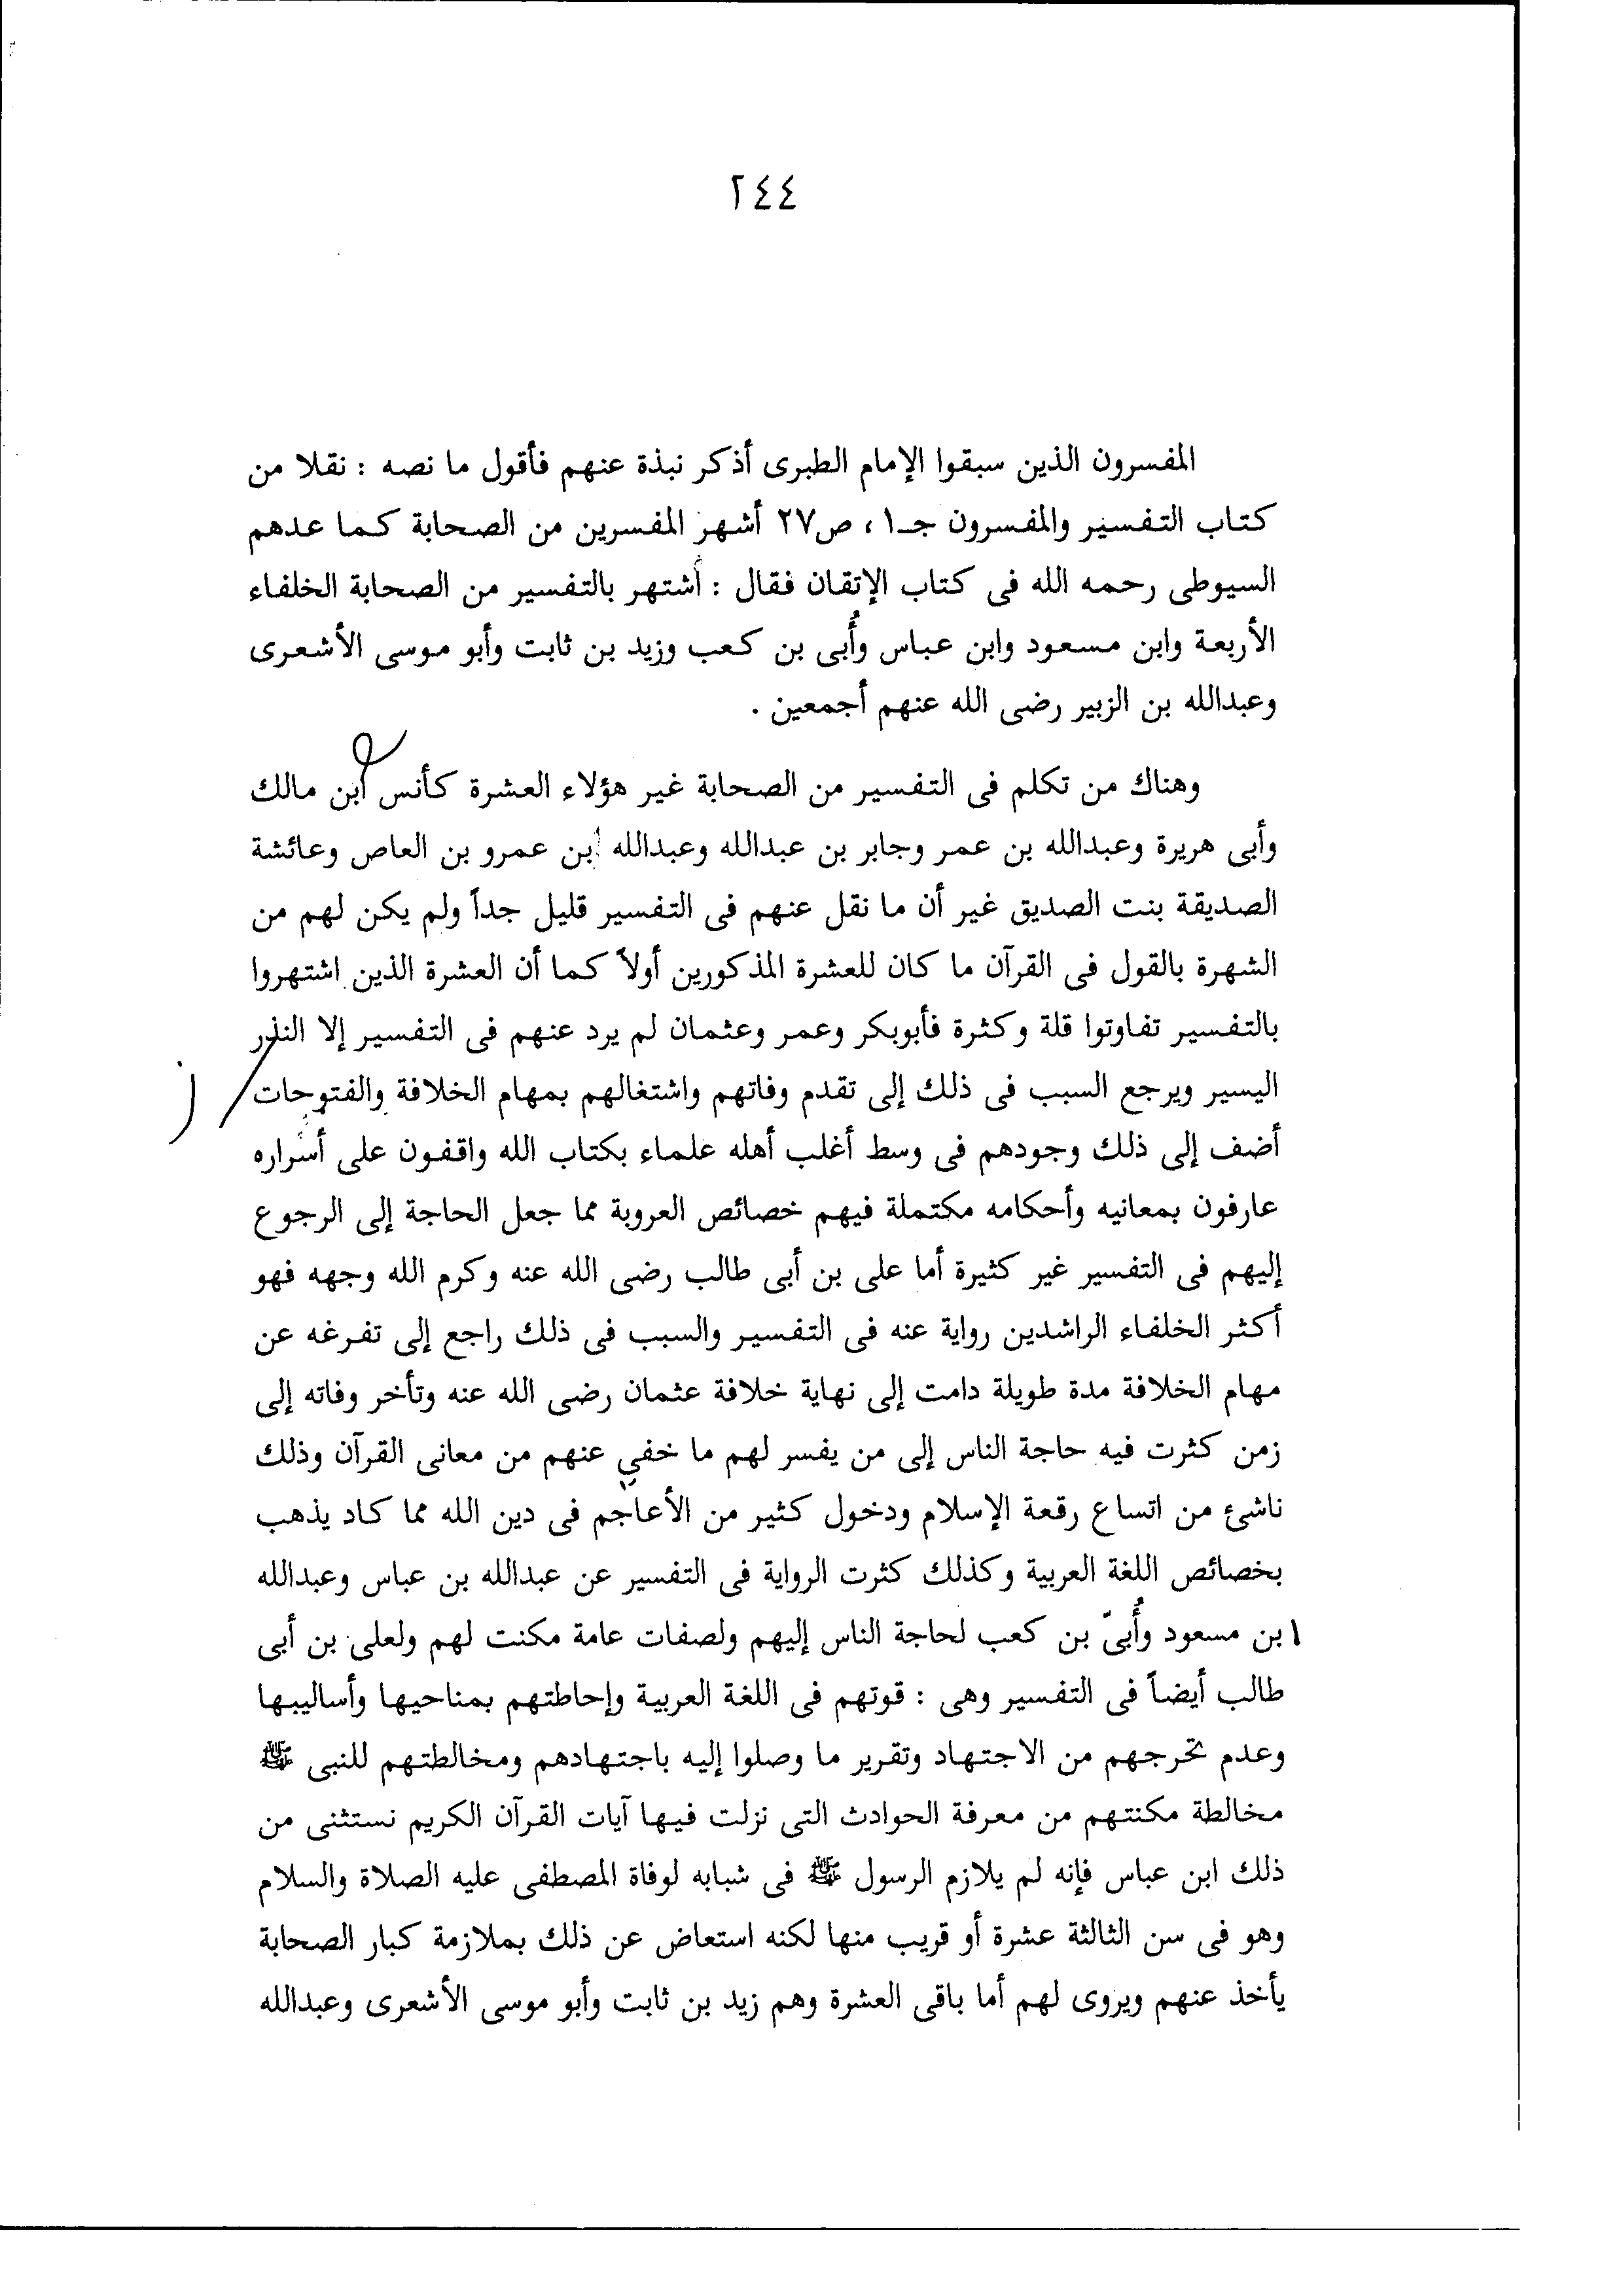 ٢٤٤
المفسرون الذين سبقوا الإمام الطبرى أذكر نبذة عنهم فأقول ما نصه : نقلا من
كتاب التفسير والمفسرون جـ١ ، ص٢٧ أشهر المفسرين من الصحابة كما عدهم
السيوطى رحمه الله فى كتاب الإتقان فقال : أشتهر بالتفسير من الصحابة الخلفاء
الأربعة وابن مسعود وابن عباس وأُبى بن كعب وزيد بن ثابت وأبو موسى الأشعرى
وعبدالله بن الزبير رضى الله عنهم أجمعين .
وهناك من تكلم فى التفسير من الصحابة غير هؤلاء العشرة كأنس ابن مالك
وأبى هريرة وعبدالله بن عمر وجابر بن عبدالله وعبدالله ابن عمرو بن العاص وعائشة
الصديقة بنت الصديق غير أن ما نقل عنهم فى التفسير قليل جداً ولم يكن لهم من
الشهرة بالقول فى القرآن ما كان للعشرة المذكورين أولاً كما أن العشرة الذين اشتهروا
بالتفسير تفاوتوا قلة وكثرة فأبوبكر وعمر وعثمان لم يرد عنهم فى التفسير إلا النذر
اليسير ويرجع السبب فى ذلك إلى تقدم وفاتهم واشتغالهم بمهام الخلافة والفتوحات / ز
أضف إلى ذلك وجودهم فى وسط أغلب أهله علماء بكتاب الله واقفون على أسراره
عارفون بمعانيه وأحكامه مكتملة فيهم خصائص العروبة مما جعل الحاجة إلى الرجوع
إليهم فى التفسير غير كثيرة أما على بن أبى طالب رضى الله عنه وكرم الله وجهه فهو
أكثر الخلفاء الراشدين رواية عنه فى التفسير والسبب فى ذلك راجع إلى تفرغه عن
مهام الخلافة مدة طويلة دامت إلى نهاية خلافة عثمان رضى الله عنه وتأخر وفاته إلى
زمن كثرت فيه حاجة الناس إلى من يفسر لهم ما خفي عنهم من معانى القرآن وذلك
ناشئ من اتساع رقعة الإسلام ودخول كثير من الأعاجم فى دين الله مما كاد يذهب
بخصائص اللغة العربية وكذلك كثرت الرواية فى التفسير عن عبدالله بن عباس وعبدالله
ابن مسعود وأُبىّ بن كعب لحاجة الناس إليهم ولصفات عامة مكنت لهم ولعلى بن أبى
طالب أيضاً فى التفسير وهى : قوتهم فى اللغة العربية وإحاطتهم بمناحيها وأساليبها
وعدم تحرجهم من الاجتهاد وتقرير ما وصلوا إليه باجتهادهم ومخالطتهم للنبى ﷺ
مخالطة مكنتهم من معرفة الحوادث التى نزلت فيها آيات القرآن الكريم نستثنى من
ذلك ابن عباس فإنه لم يلازم الرسول ﷺ فى شبابه لوفاة المصطفى عليه الصلاة والسلام
وهو فى سن الثالثة عشرة أو قريب منها لكنه استعاض عن ذلك بملازمة كبار الصحابة
يأخذ عنهم ويروى لهم أما باقى العشرة وهم زيد بن ثابت وأبو موسى الأشعرى وعبدالله